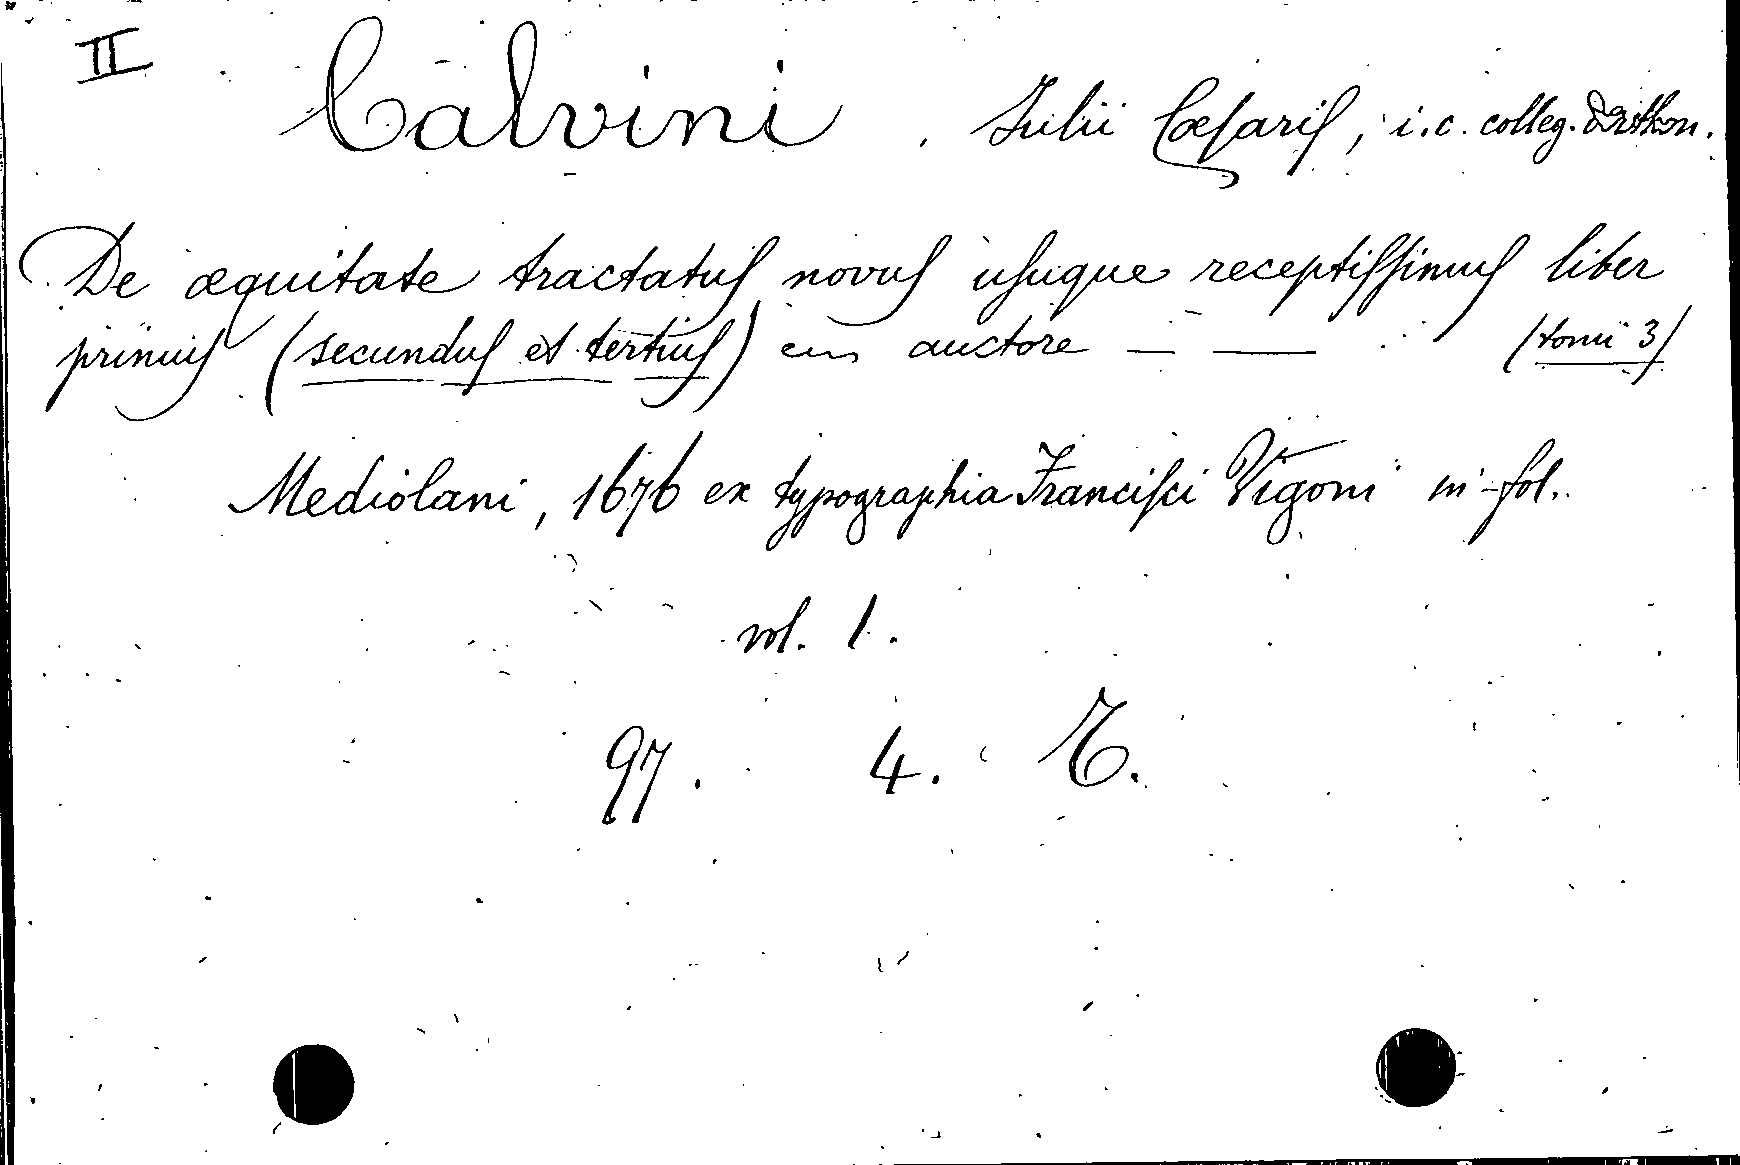 II Calvini. Julii Cæsaris, i.c. colleg.
De æquitate tractatus novus usuque receptissimus liber
primus (secundus et tertius) auctore — — (tomi 3)
Mediolani, 1676 ex typographia Francisci Vigoni in-fol.
vol. 1.
97. 4.